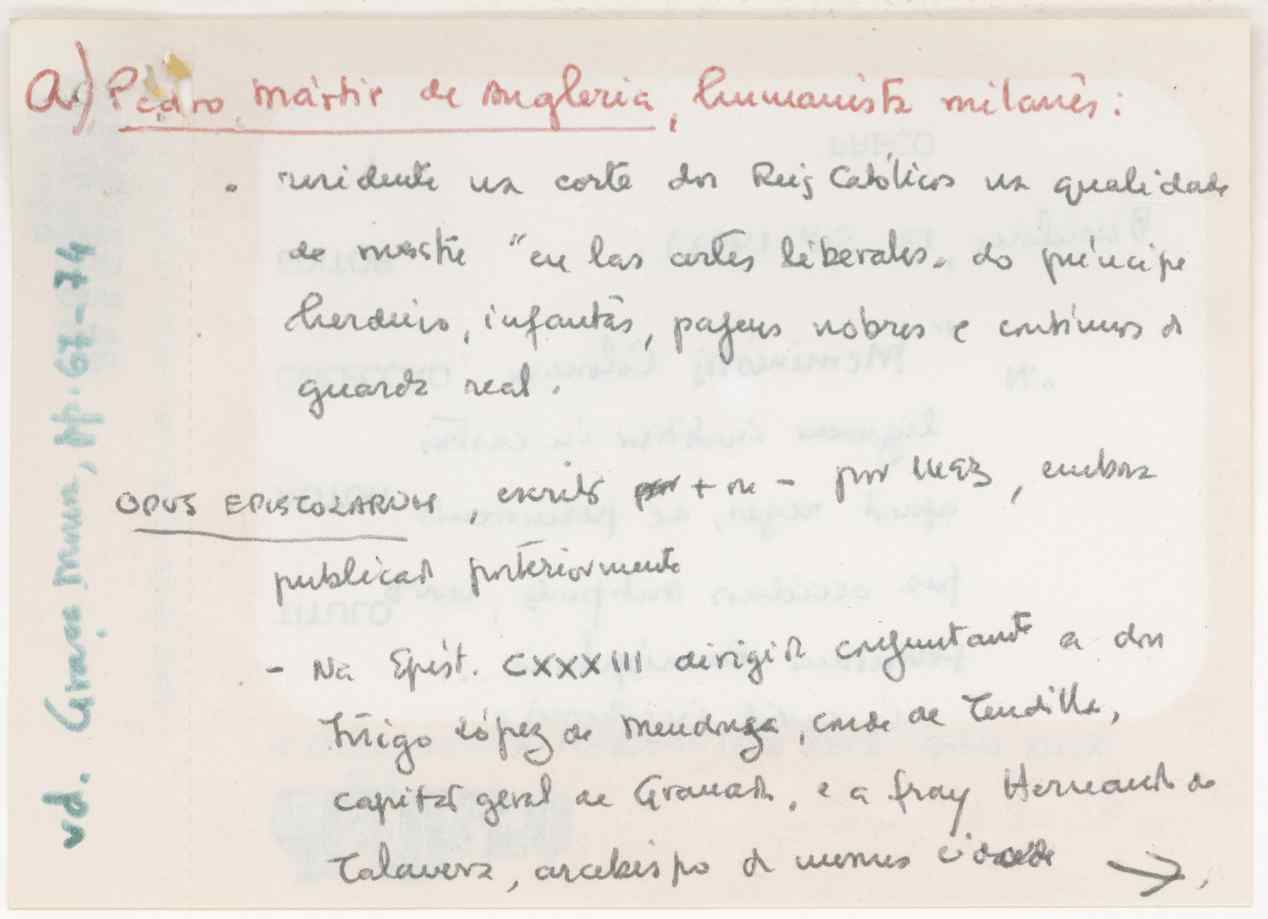 a) Pedro Mártir de Angleria, humanista milanês:
• residente na corte dos Reis Católicos na qualidade
de mestre "en las artes liberales" do príncipe
herdeiro, infantas, pagens nobres e contínuos da
guarda real.
OPUS EPISTOLARUM, escrito + ou - por 1493, embora
publicado posteriormente
- Na Epíst. CXXXIII dirigida conjuntamente a don
Iñigo López de Mendoza, conde de Tendilla,
capitão geral de Granada, e a fray Hernando de
Talavera, arcebispo da mesma cidade →
vd. Graça Moura, pp. 67-74